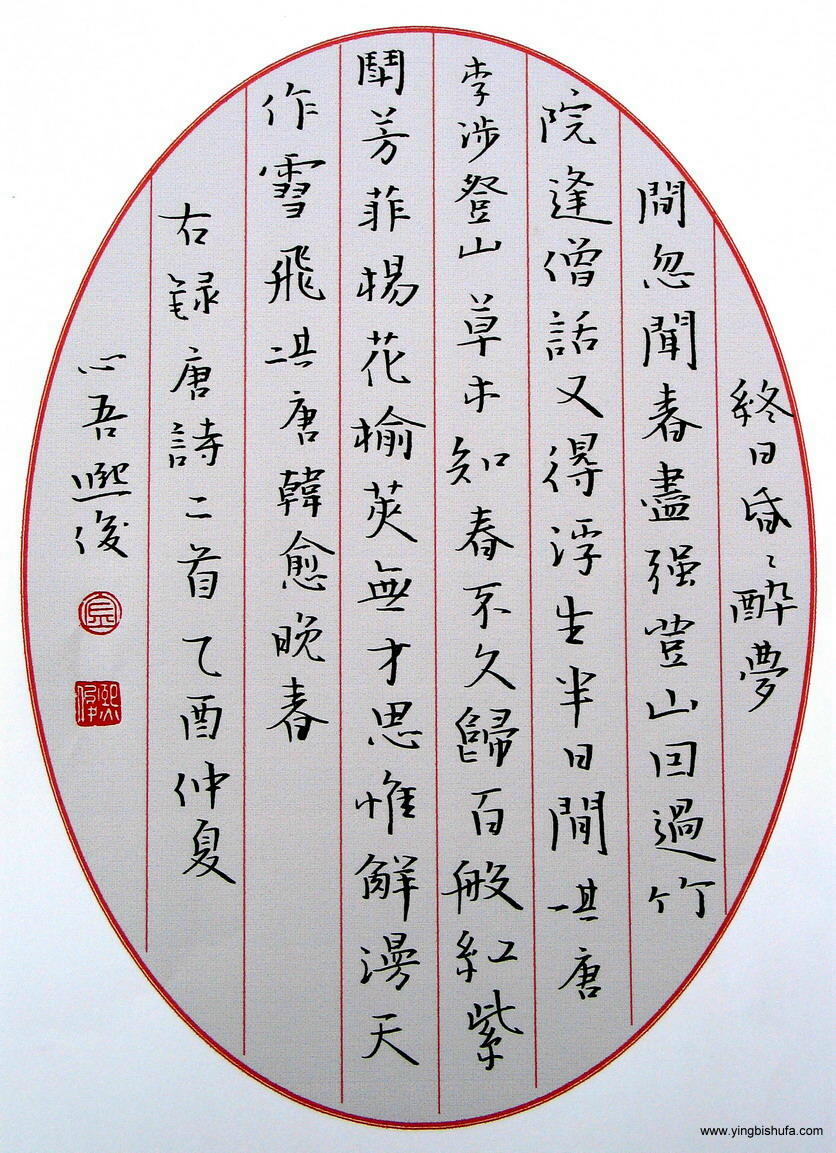 終日昏〻醉夢
間忽聞春盡强登山因過竹
院逢僧話又得浮生半日間其一唐
李涉登山草木知春不久歸百般紅紫
鬥芳菲楊花榆莢無才思惟解漫天
作雪飛其二唐韓愈晚春
右録唐詩二首乙酉仲夏
心吾熙俊
熙俊
www.yingbishufa.com